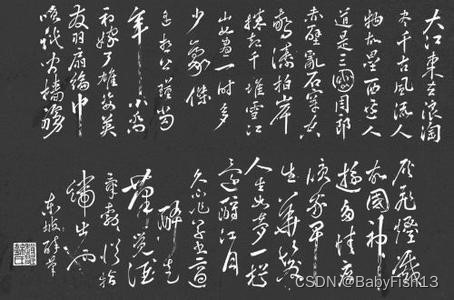 大江東去浪淘
尽千古風流人
物故壘西邊人
道是三國周郎
赤壁亂石穿空
驚濤拍岸
捲起千堆雪江
山如畫一時多
少豪傑
遙想公瑾當
年小喬
初嫁了雄姿英
发羽扇綸巾
談笑間檣艣
灰飛煙滅
故國神
遊多情應
笑我早
生華髮
人生如夢一樽
還酹江月
久不作草書適
乘醉走
筆覺酒
氣勃勃從指
端出也
東坡醉筆
CSDN @BabyFish13